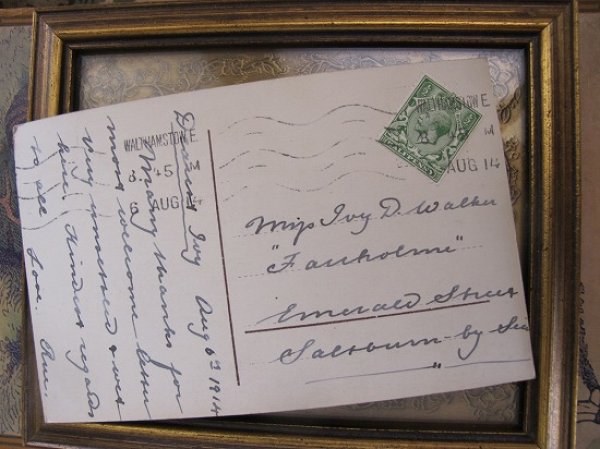 WALTHAMSTOW.E.
6 AUG 14
WALTHAMSTOW.E.
AUG 14
Dearest Ivy Aug 6th 1914
Many thanks for
most welcome letter
Very unsettled & wet
here. Kindest regards
to all Love
Miss Ivy D. Walker
"Fairholme"
Emerald Street
Saltburn-by-Sea